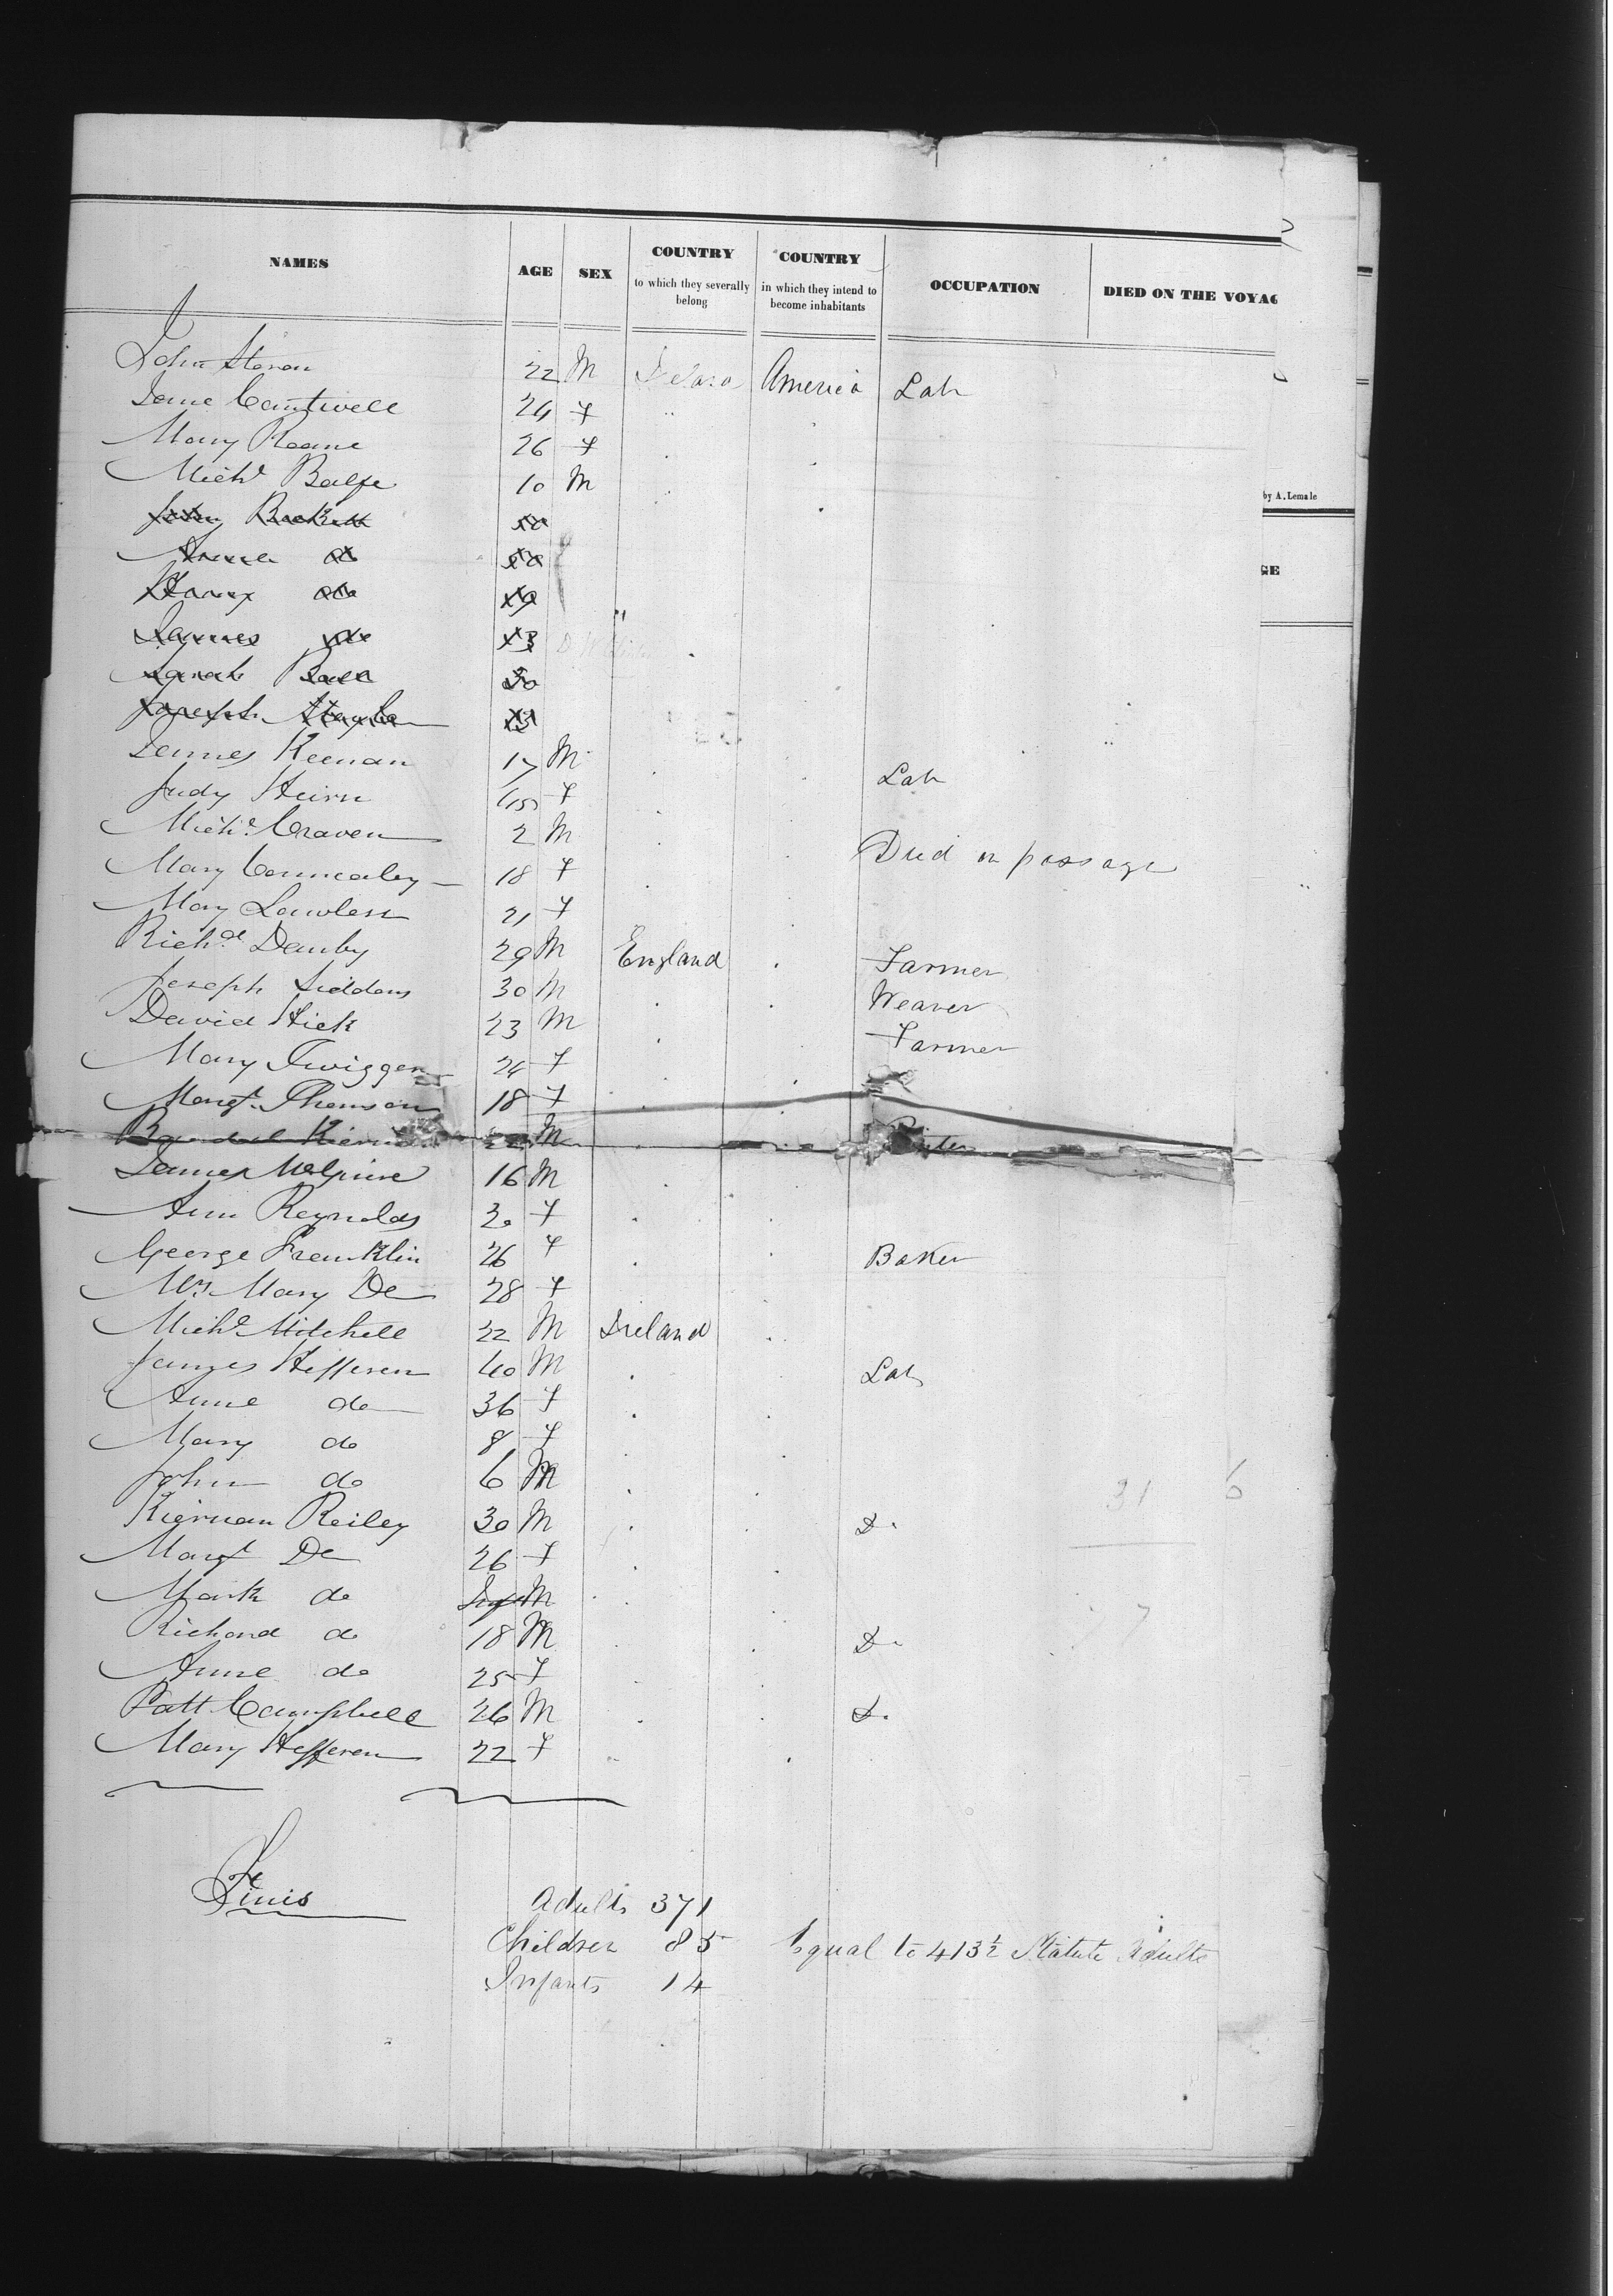 NAMES AGE SEX COUNTRY to which they severally belong COUNTRY in which they intend to become inhabitants OCCUPATION DIED ON THE VOYAG
John 22 M America Lab
Jane Cantwell 24 F "
Mary Keane 26 F
Michl Balfe 10 M
by A. Lemale
GE
do
do
James do
Sarah
Joseph
James Keenan 17 M Lab
Judy F
Michl Craven 2 M Died on passage
Mary 18 F
Mary Lawless 21 F
Richd Danby 29 M England Farmer
Joseph Siddons 30 M Weaver
David Hick 23 M Farmer
Mary Twiggen 24 F
Margt Thomson 18 F
M
James 16 M
Ann Reynolds 30 F
George Franklin 26 F Baker
Mrs Mary Do 28 F
Michl Mitchell 22 M Ireland
James Hefferen 40 M Lab
Anne do 36 F
Mary do 8 F
John do 6 M
31 6
Kiernan Reiley 30 M D.
Margt Do 26 F
Mark do Inf M
Richard do 18 M D.
77
Anne do 25 F
Patt Campbell 26 M D.
Mary Hefferen 22 F
Finis
Adults 371
Children 85 Equal to 413½ Statute Adults
Infants 14